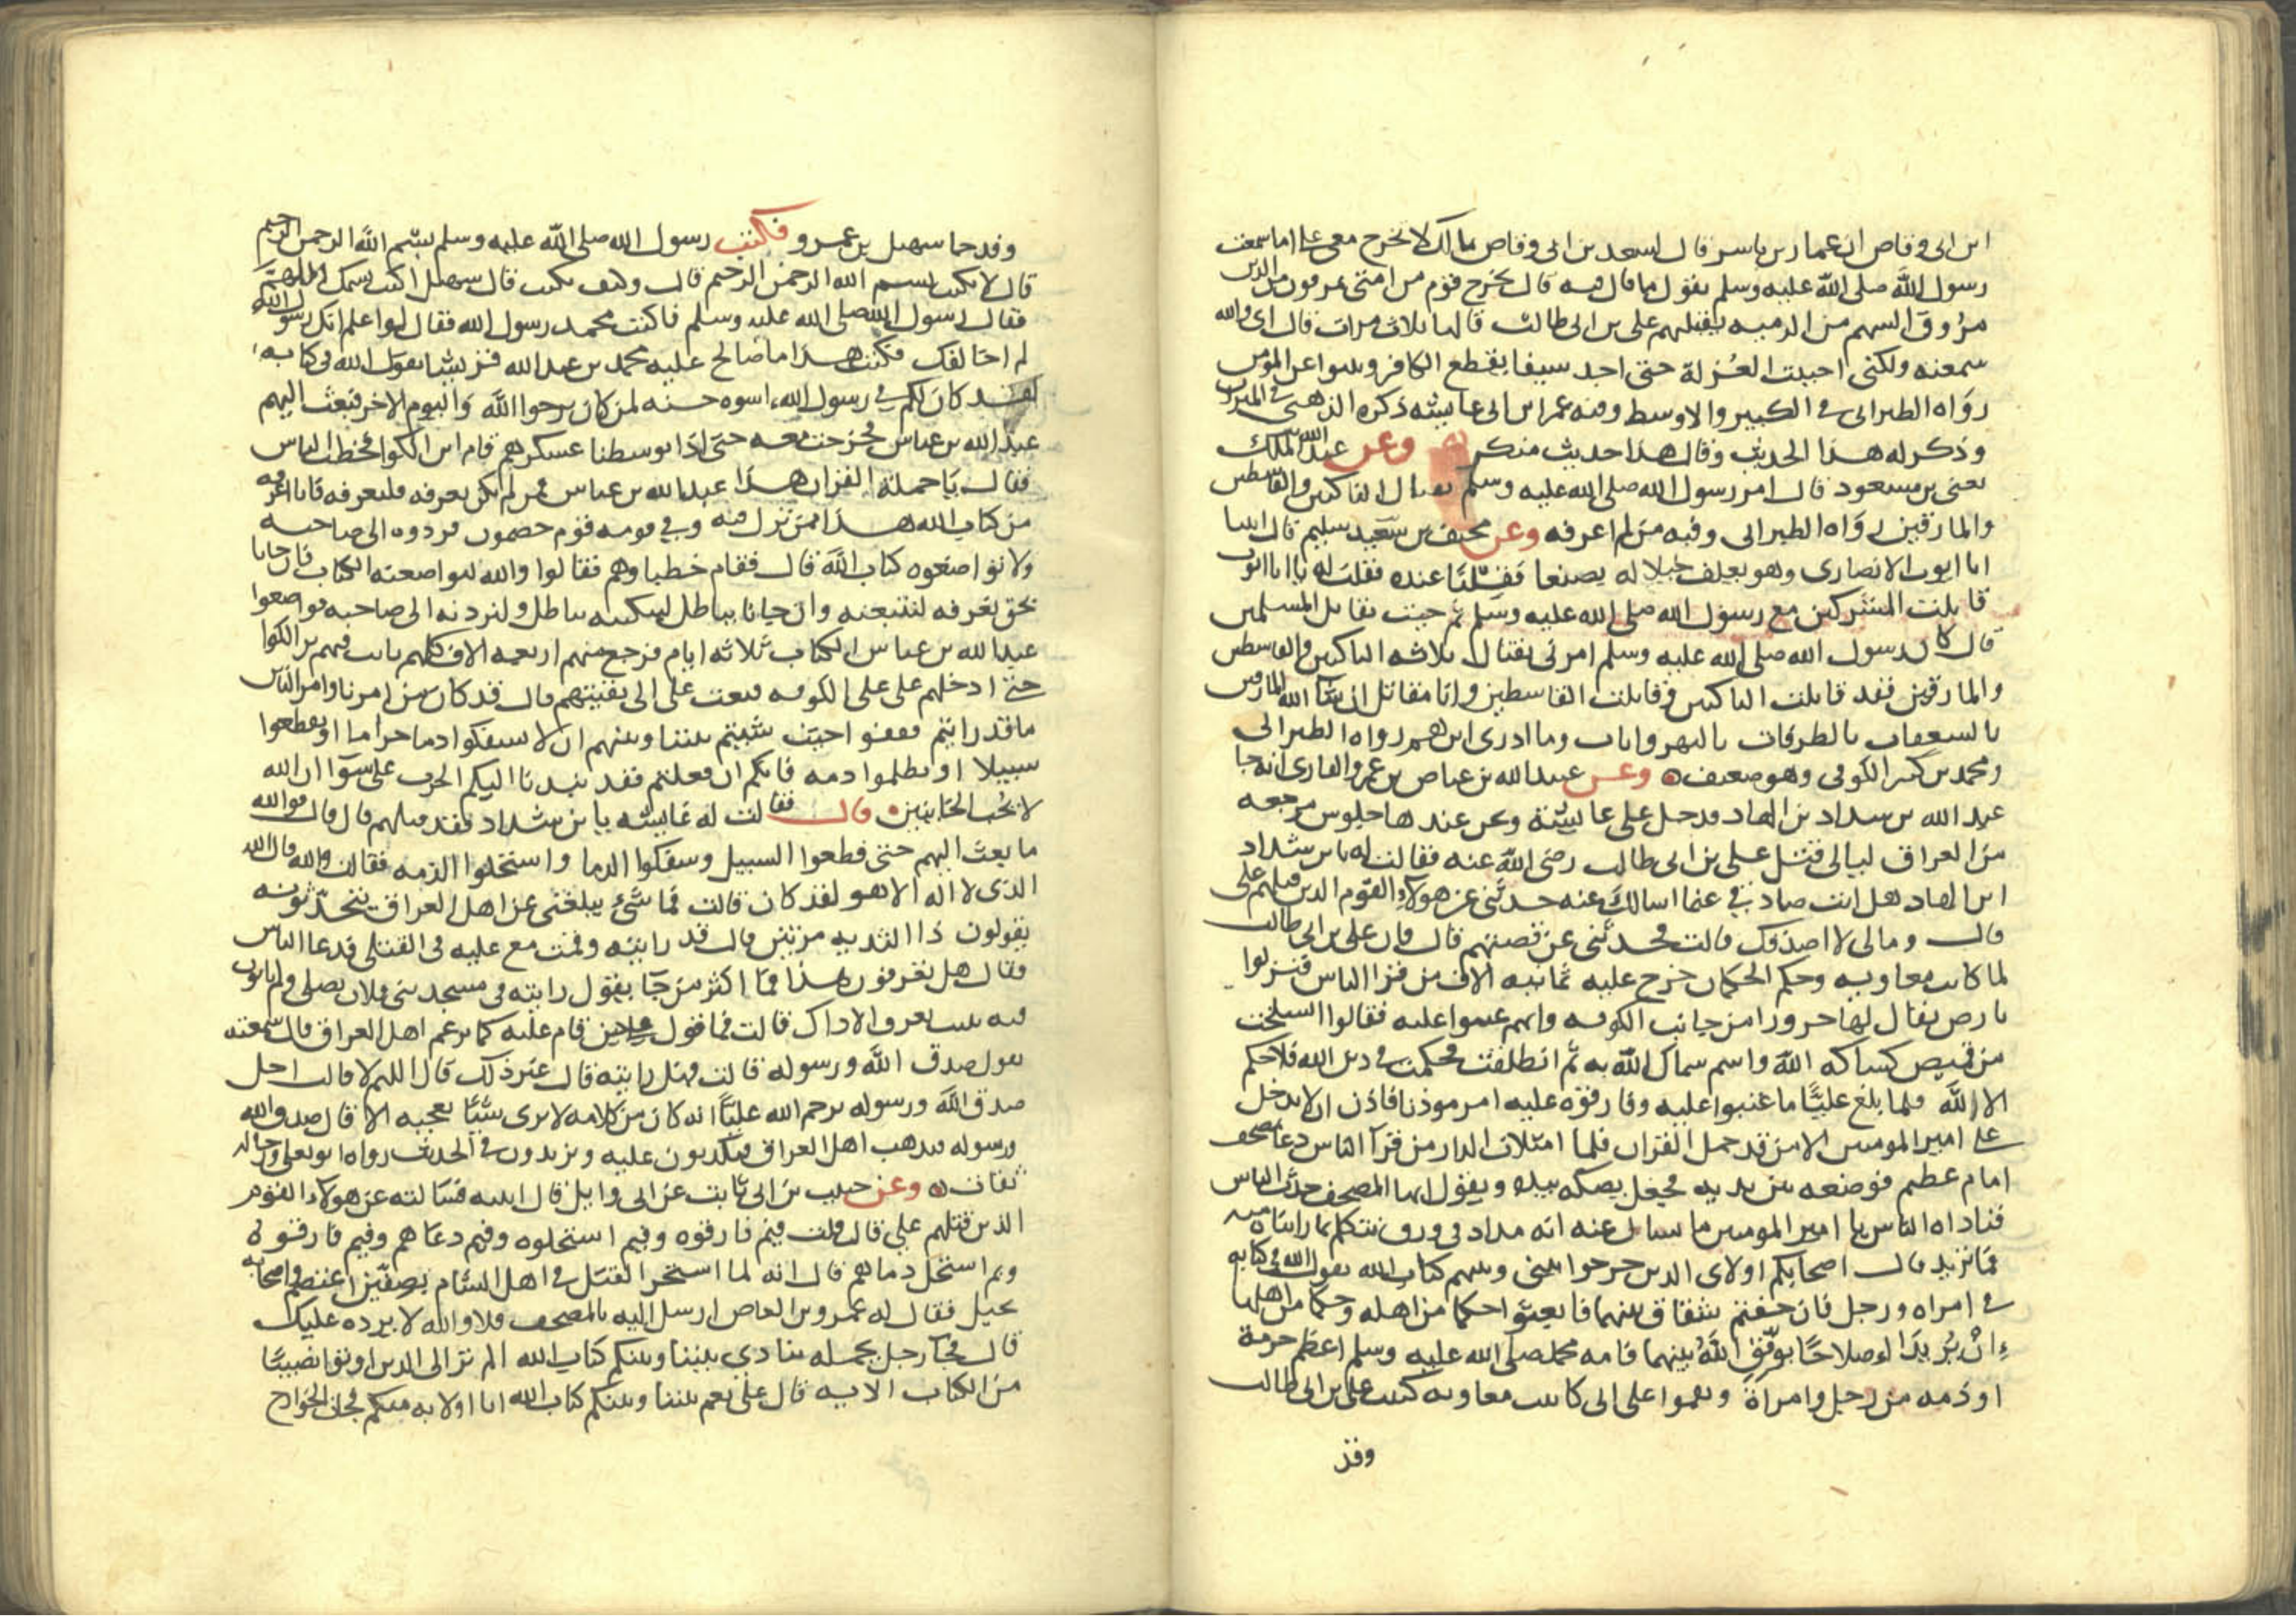 ابن ابى وقاص ان عمار بن ياسر قال لسعد بن ابى وقاص مالك لا تخرج مع على اما سمعت
رسول الله صلى الله عليه وسلم يقول ما قال فيه قال يخرج قوم من امتى يمرقون من الدين
مروق السهم من الرميه يقتلهم على بن ابى طالب قالها ثلاث مرات قال اى والله
سمعته ولكنى احببت العزلة حتى اجد سيفا يقطع الكافر وينبوا عن المؤمن
رواه الطبرانى فى الكبير والاوسط وفيه عمر ابن ابى عايشه ذكره الذهبى فى الميزان
وذكر له هذا الحديث وقال هذا حديث منكر وعن عبد الله
يعنى بن مسعود قال امر رسول الله صلى الله عليه وسلم بقتال الناكثين والقاسطين
والمارقين رواه الطبرانى وفيه من لم اعرفه وعن مخنف بن سليم قال اتينا
ابا ايوب الانصارى وهو يعلف خيلا له بصنعا فقلنا عنده فقلت له يا ابا ايوب
قاتلت المشركين مع رسول الله صلى الله عليه وسلم ثم جيت تقاتل المسلمين
قال كان رسول الله صلى الله عليه وسلم امرنى بقتال ثلاثه الناكثين والقاسطين
والمارقين فقد قاتلت الناكثين وقاتلت القاسطين وانا مقاتل ان شا الله المارقين
بالسعفات بالطرقات بالنهروانات وما ادرى اين هم رواه الطبرانى
ومحمد بن كثير الكوفى وهو ضعيف وعن عبيد الله بن عياض بن عمرو القارى انه جا
عبد الله بن شداد بن الهاد فدخل على عايشة ونحن عندها جلوس مرجعه
من العراق ليالى قتل على بن ابى طالب رضى الله عنه فقالت له يا بن شداد
ابن الهاد هل انت صادقى عما اسالك عنه حدثنى عن هولاء القوم الذين قتلهم على
قال ومالى لا اصدقك قالت فحدثنى عن قصتهم قال فان على بن ابى طالب
لما كاتب معاويه وحكم الحكمان خرج عليه ثمانيه الاف من قرا الناس فنزلوا
بارض يقال لها حرورا من جانب الكوفه وانهم عتبوا عليه فقالوا انسلخت
من قميص كساكه الله واسم سماك الله به ثم انطلقت فحكمت فى دين الله فلا حكم
الا لله فلما بلغ عليًّا ما عتبوا عليه وفارقوه عليه امر موذنا فاذن ان لا يدخل
على امير المومنين الا من قد حمل القران فلما امتلات الدار من قرا الناس دعا بمصحف
امام عظيم فوضعه بين يديه فجعل يصكه بيده ويقول ايها المصحف حدث الناس
فناداه الناس يا امير المومنين ما تسال عنه انه مداد فى ورق نتكلم بما راينا منه
فما تريد قال اصحابكم اولاى الذين خرجوا بينى وبينهم كتاب الله يقول الله فى كتابه
فى امراه ورجل فان خفتم شقاق بينهما فابعثوا حكما من اهله وحكما من اهلها
ان يريدا اصلاحًا يوفق الله بينهما فامه محمد صلى الله عليه وسلم اعظم حرمة
او ذمه من رجل وامراة ونقموا على انى كاتبت معاويه كتبت على بن ابى طالب
وقد
وقد جا سهيل بن عمرو فكتب رسول الله صلى الله عليه وسلم بسم الله الرحمن الرحيم
قال لا تكتب بسم الله الرحمن الرحيم قال وكيف نكتب قال سهيل اكتب باسمك اللهم
فقال رسول الله صلى الله عليه وسلم فاكتب محمد رسول الله فقال لو اعلم انك رسول الله
لم اخالفك فكتب هذا ما صالح عليه محمد بن عبد الله قريشا يقول الله فى كتابه
لقد كان لكم فى رسول الله اسوه حسنه لمن كان يرجوا الله واليوم الاخر فبعث اليهم
عبد الله بن عباس فخرجت معه حتى اذا توسطنا عسكرهم قام ابن الكوا فخطب الناس
فقال يا حملة القران هذا عبد الله بن عباس فمن لم يكن يعرفه فليعرفه فانا اعرفه
من كتاب الله هذا ممن نزل فيه وفى قومه قوم خصمون فردوه الى صاحبه
ولا تواضعوه كتاب الله قال فقام خطباوهم فقالوا والله لنواضعنه الكتاب فان جانا
بحق نعرفه لنتبعنه وان جانا بباطل لنبكتنه بباطل ولنردنه الى صاحبه فواضعوا
عبد الله بن عباس الكتاب ثلاثه ايام فرجع منهم اربعه الاف كلهم تايب فيهم بن الكوا
حتى ادخلهم على على الكوفه فبعث على الى بقيتهم قال قد كان من امرنا وامر الناس
ما قد رايتم فقفوا حيث شيتم بيننا وبينهم ان لا تسفكوا دما حراما او تقطعوا
سبيلا او تظلموا ذمه فانكم ان فعلتم فقد نبذنا اليكم الحرب على سوآ ان الله
لا يحب الخاينين قال فقالت له عايشه يا بن شداد فقد قتلهم قال فوالله
ما بعث اليهم حتى قطعوا السبيل وسفكوا الدما واستحلوا الذمه فقالت والله قال الله
الذى لا اله الا هو لقد كان قالت فما شىء يبلغنى عن اهل العراق يتحدثونه
يقولون ذا الثديه مرتين قال قد رايته وقمت مع عليه فى القتلى فدعا الناس
فقال هل تعرفون هذا فما اكثر من جا يقول رايته فى مسجد بنى فلان يصلى ولم ياتوا
فيه بثبت يعرف الا ذاك قالت فما قول على حين قام عليه كما يزعم اهل العراق قال سمعته
يقول صدق الله ورسوله قالت فهل رايته قال غير ذلك قال اللهم لا قالت اجل
صدق الله ورسوله يرحم الله عليًّا انه كان من كلامه لا يرى شيًا يعجبه الا قال صدق الله
ورسوله فيذهب اهل العراق فيكذبون عليه ويزيدون فى الحديث رواه ابو يعلى ورجاله
ثقات وعن حبيب بن ابى ثابت عن ابى وايل قال اتيته فسالته عن هولاء القوم
الذين قتلهم على قال قلت فيم فارقوه وفيم استحلوه وفيم دعاهم وفيم فارقوه
وبم استحل دماهم قال انه لما استحر القتل فى اهل الشام بصفين اعتصم واصحابه
بحيل فقال له عمرو بن العاص ارسل اليه بالمصحف فلا والله لا يرده عليك
قال فجا رجل يحمله ينادى بيننا وبينكم كتاب الله الم تر الى الذين اوتوا نصيبًا
من الكتاب الايه قال على نعم بيننا وبينكم كتاب الله انا اولا به منكم فجات الخوارج